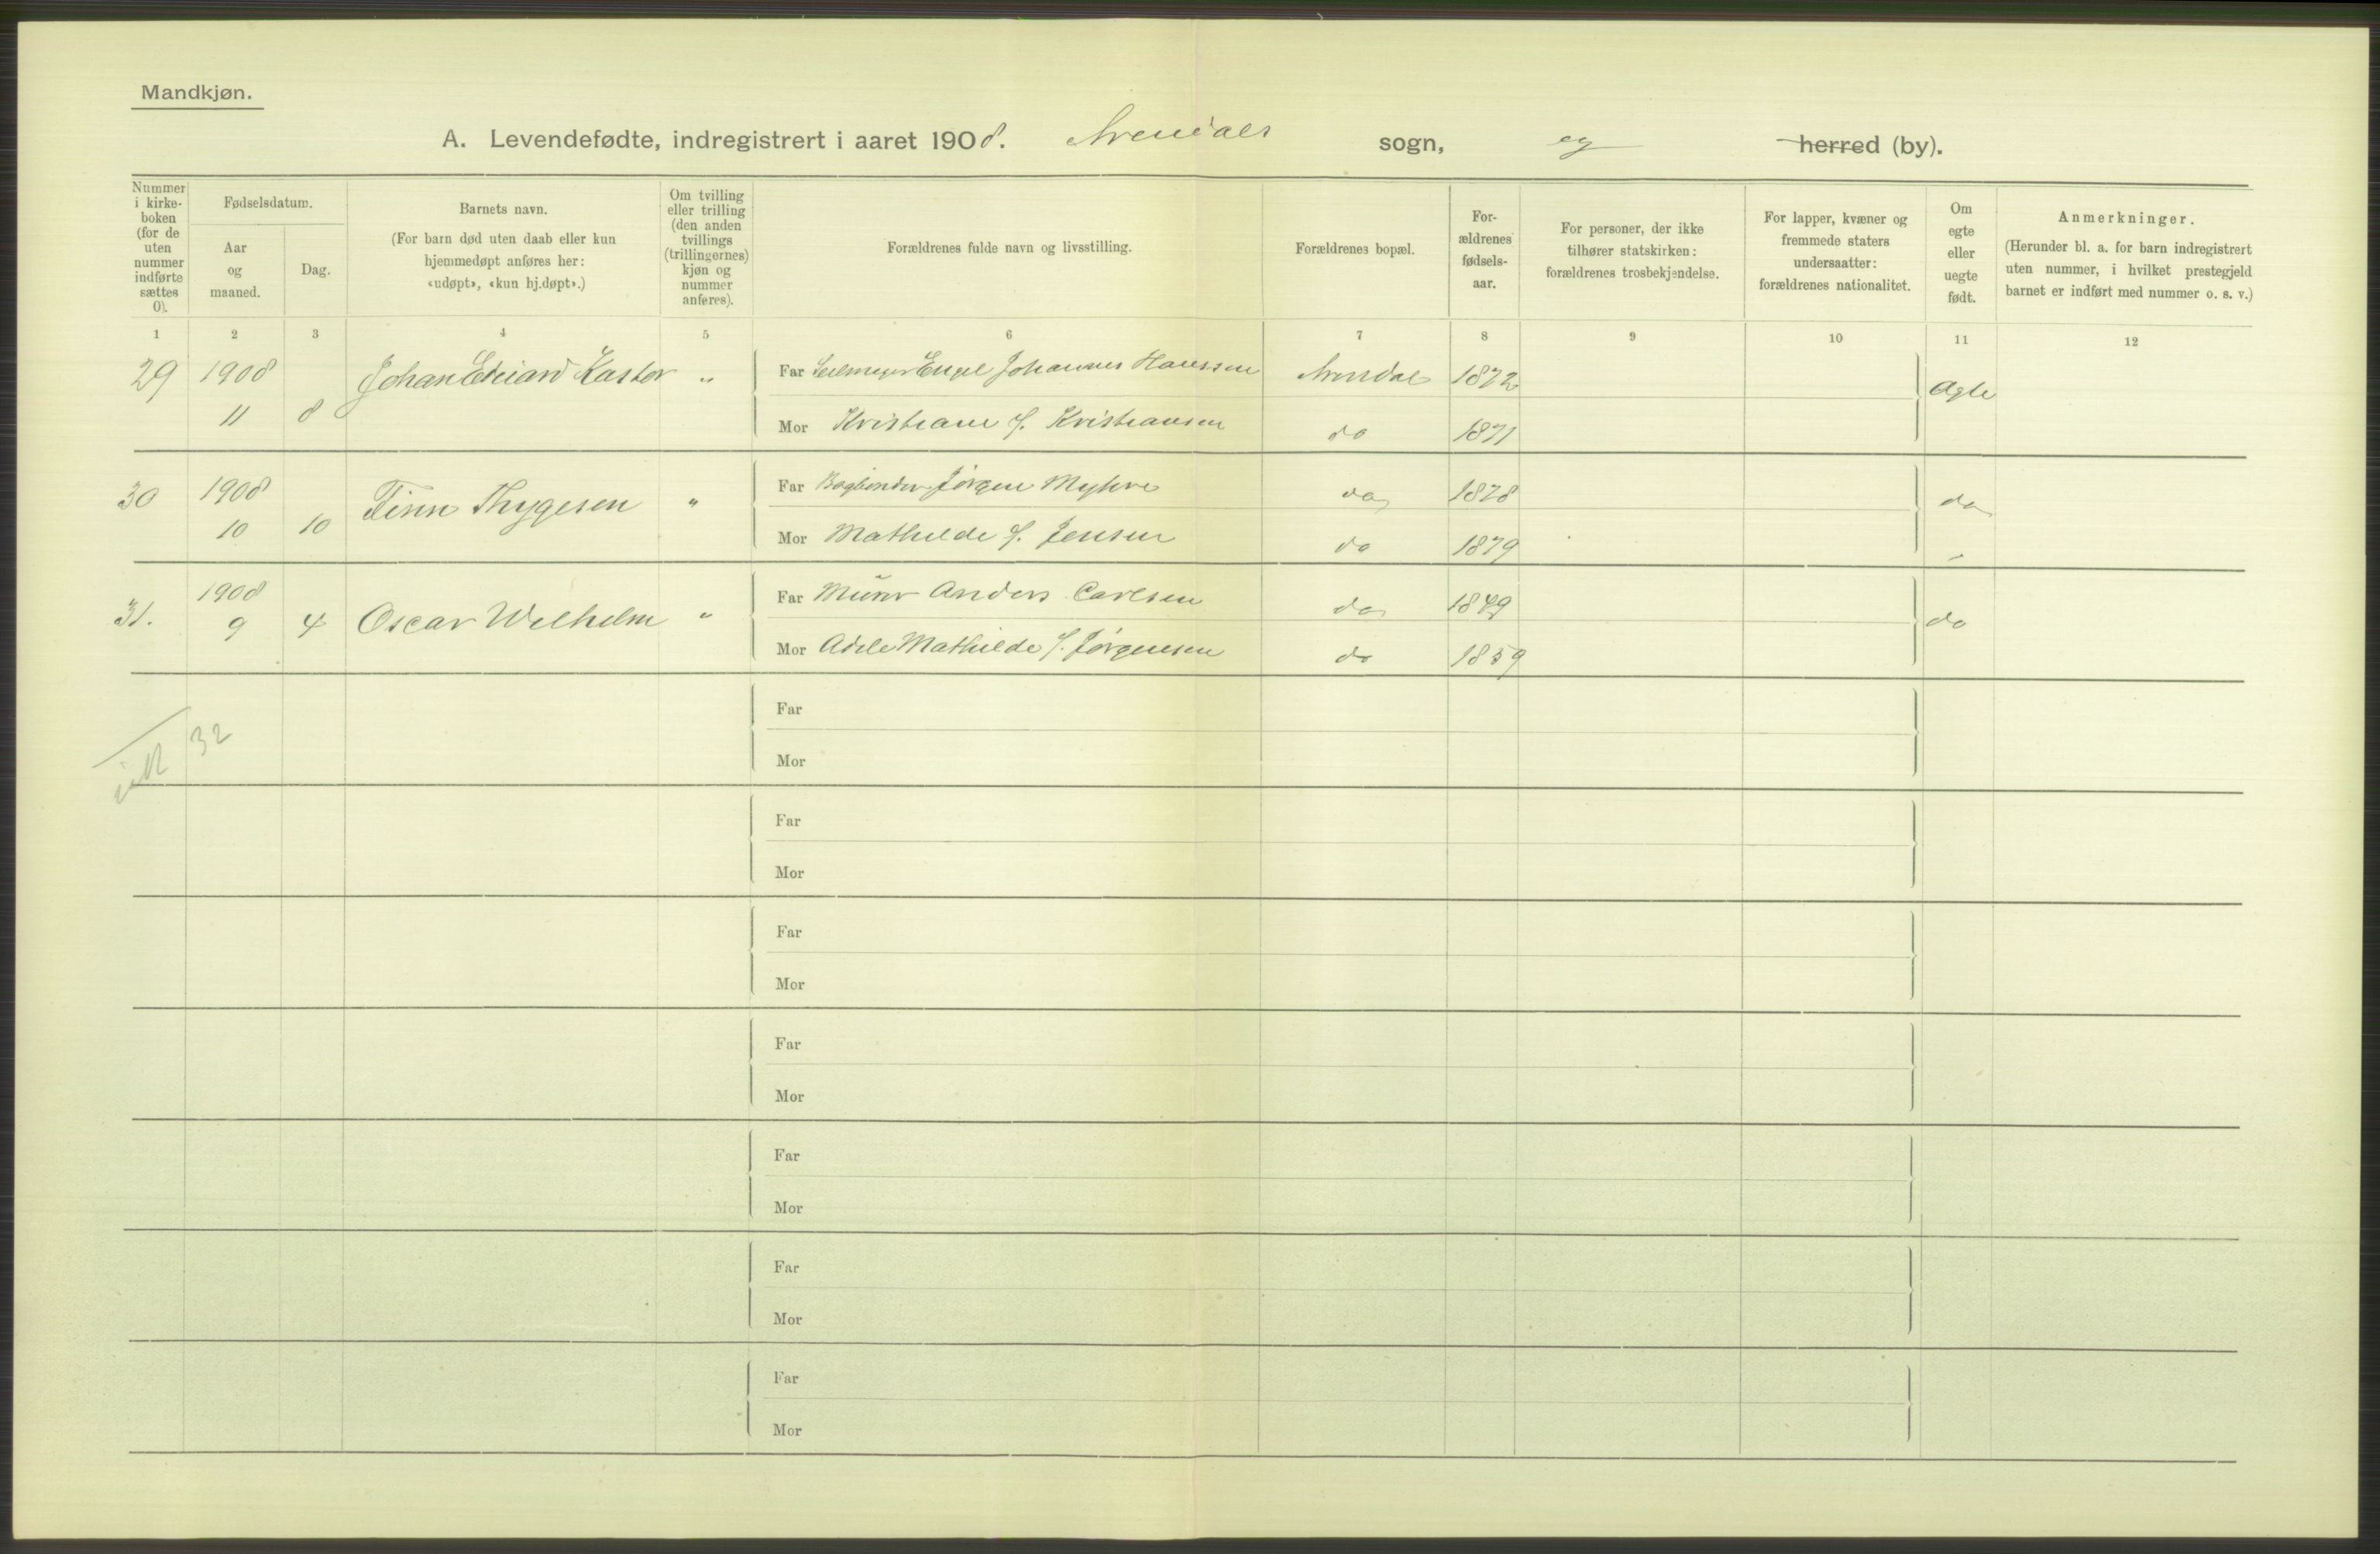 Mandkjøn.
A. Levendefødte, indregistrert i aaret 1908. Arendals sogn, og herred (by).
Nummer i kirke-boken (for de uten nummer indførte sættes 0).
Fødselsdatum.
Aar og maaned.
Dag.
Barnets navn.
(For barn død uten daab eller kun hjemmedøpt anføres her: «udøpt», «kun hj.døpt».)
Om tvilling eller trilling (den anden tvillings (trillingernes) kjøn og nummer anføres).
Forældrenes fulde navn og livsstilling.
Forældrenes bopæl.
For-ældrenes fødsels-aar.
For personer, der ikke tilhører statskirken: forældrenes trosbekjendelse.
For lapper, kvæner og fremmede staters undersaatter: forældrenes nationalitet.
Om egte eller uegte født.
Anmerkninger.
(Herunder bl. a. for barn indregistrert uten nummer, i hvilket prestegjeld barnet er indført med nummer o. s. v.)
1 2 3 4 5 6 7 8 9 10 11 12
29 1908 11 8 Johan Edvard Kastor " Far Seilmager Engel Johannes Hanssen Arendal 1872 Ægte
Mor Kristiane f. Kristiansen do 1871
30 1908 10 10 Finn Thygesen " Far Bogbinder Jørgen Myhre do 1878 do
Mor Mathilde f. Jensen do 1879
31. 1908 9 4 Oscar Wilhelm " Far Murer Anders Carlsen do 1849 do
Mor Adele Mathilde f. Jørgensen do 1859
Far
Mor
32
Far
Mor
Far
Mor
Far
Mor
Far
Mor
Far
Mor
Far
Mor